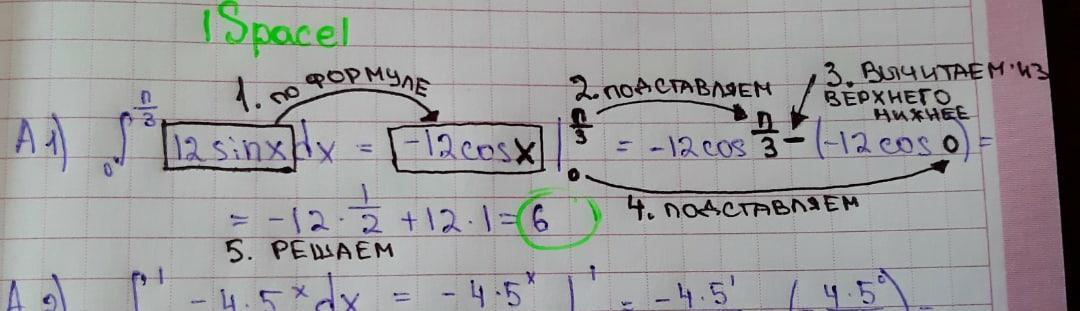 |Space|
1. ПО ФОРМУЛЕ
2. ПОДСТАВЛЯЕМ
3. ВЫЧИТАЕМ ИЗ
ВЕРХНЕГО
НИЖНЕЕ
А1) ∫₀^(π/3) 12sinx dx = -12cosx |₀^(π/3) = -12cos π/3 - (-12cos0) =
= -12 · 1/2 + 12 · 1 = 6
4. ПОДСТАВЛЯЕМ
5. РЕШАЕМ
А2) ∫¹ -4·5ˣdx = -4·5ˣ |¹ = -4·5¹ (4·5⁰)